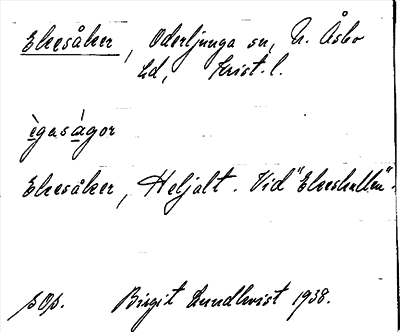 Ekesåker, Oderljunga sn, N. Åsbo
hd, Krist. l.
ègasàgor
Ekesåker, Heljalt. Vid "Ekeshallen".
pOp. Birgit Lundkvist 1938.